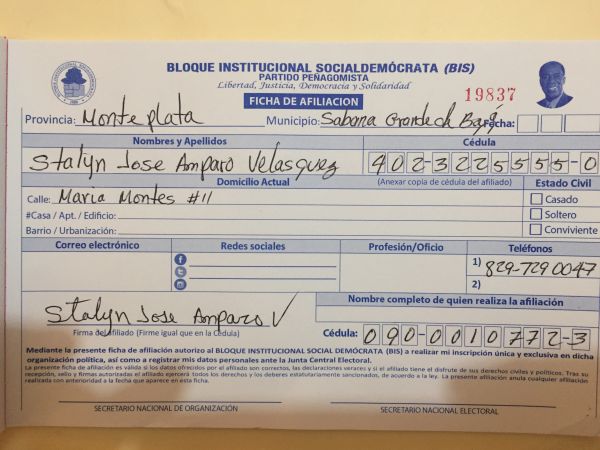 BLOQUE INSTITUCIONAL SOCIALDEMÓCRATA (BIS)
PARTIDO PEÑAGOMISTA
Libertad, Justicia, Democracia y Solidaridad
FICHA DE AFILIACION
19837
Provincia: Monte plata Municipio: Sabana Grande de Fecha:
Nombres y Apellidos Cédula
Stalyn Jose Amparo Velasquez 402-3225555-0
Domicilio Actual (Anexar copia de cédula del afiliado) Estado Civil
Calle: Maria Montes #11 Casado
#Casa / Apt. / Edificio: Soltero
Barrio / Urbanización: Conviviente
Correo electrónico Redes sociales Profesión/Oficio Teléfonos
1) 829-729 0047
2)
Nombre completo de quien realiza la afiliación
Stalyn Jose Amparo V
Firma del afiliado (Firme igual que en la Cédula) Cédula: 090-0010772-3
Mediante la presente ficha de afiliación autorizo al BLOQUE INSTITUCIONAL SOCIAL DEMÓCRATA (BIS) a realizar mi inscripción única y exclusiva en dicha
organización política, así como a registrar mis datos personales ante la Junta Central Electoral.
La presente ficha de afiliación es válida si los datos ofrecidos por el afiliado son correctos, las declaraciones veraces y si el afiliado tiene el disfrute de sus derechos civiles y políticos. Tras su
recepción, sello y firmas autorizadas el afiliado ejercerá todos los derechos y los deberes estatutariamente sancionados, de acuerdo a la ley. La presente afiliación anula cualquier afiliación
realizada con anterioridad a la fecha que aparece en esta ficha.
SECRETARIO NACIONAL DE ORGANIZACIÓN SECRETARIO NACIONAL ELECTORAL